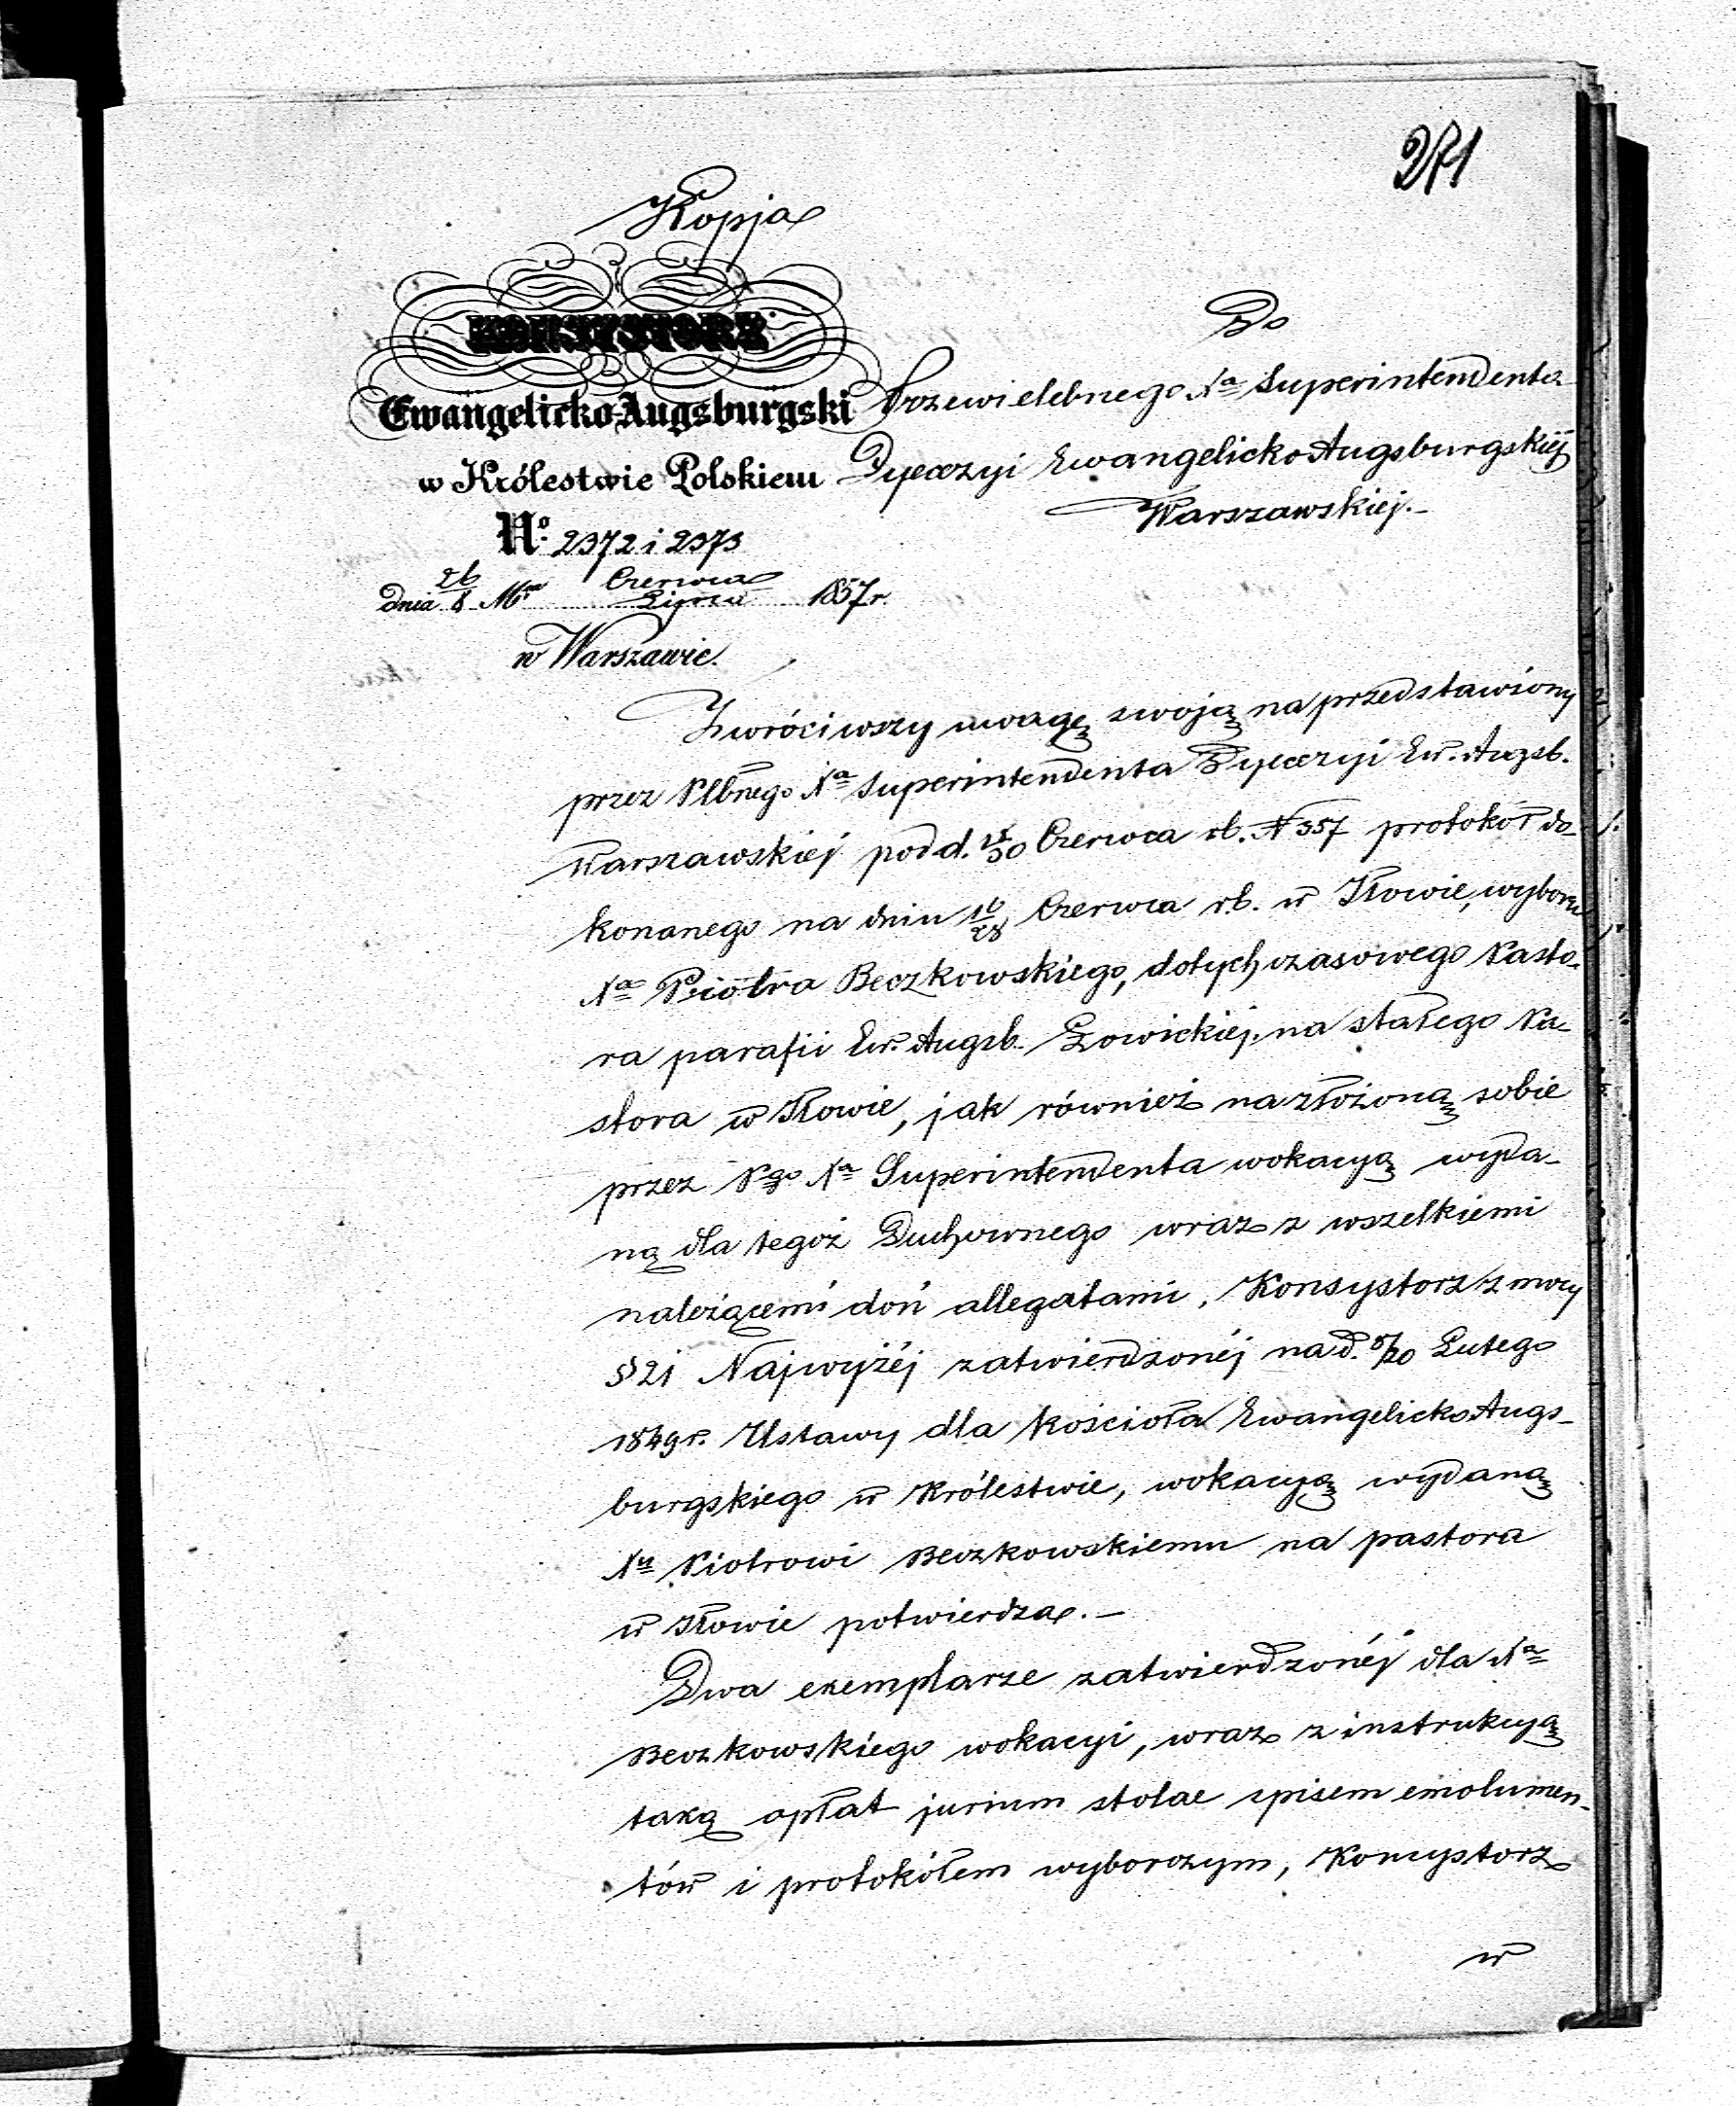 271
Kopja
KONSYSTORZ
Ewangelicko-Augsburgski
w Królestwie Polskiem
No. 2372 i 2373
dnia 26/8 Mca Czerwca/Lipca 1857 r.
w Warszawie.
Do
Przewielebnego Xa Superintendenta
Dyecezyi Ewangelicko Augsburgskiéj
Warszawskiej.-
Zwróciwszy uwagę swoją na przedstawiony
przez Plbnego Xa Superintendenta Dyecezyi Ew. Augsb.
Warszawskiéj pod d. 18/30 Czerwca rb. N 357 protokół do-
konanego na dniu 16/28 Czerwca rb. w Iłowie, wyboru
Xa Piotra Beczkowskiego, dotychczasowego Pasto-
ra parafii Ew. Augsb. Łowickiej, na stałego Pa-
stora w Iłowie, jak również na złożoną sobie
przez Pgo Xa Superintendenta wokacyą wyda-
ną dla tegoż Duchownego wraz z wszelkiemi
należącemi doń allegatami, Konsystorz z mocy
§ 21 Najwyżéj zatwierdzonéj na d. 8/20 Lutego
1849 r. Ustawy dla Kościoła Ewangelicko Augs-
burgskiego w Królestwie, wokacyą wydaną
Xu Piotrowi Beczkowskiemu na pastora
w Iłowie potwierdza.-
Dwa exemplarze zatwierdzonéj dla Xa
Beczkowskiego wokacyi, wraz z instrukcyą
taxą opłat jurium stolae spisem emolumen-
tów i protokółem wyborczym, Konsystorz
w